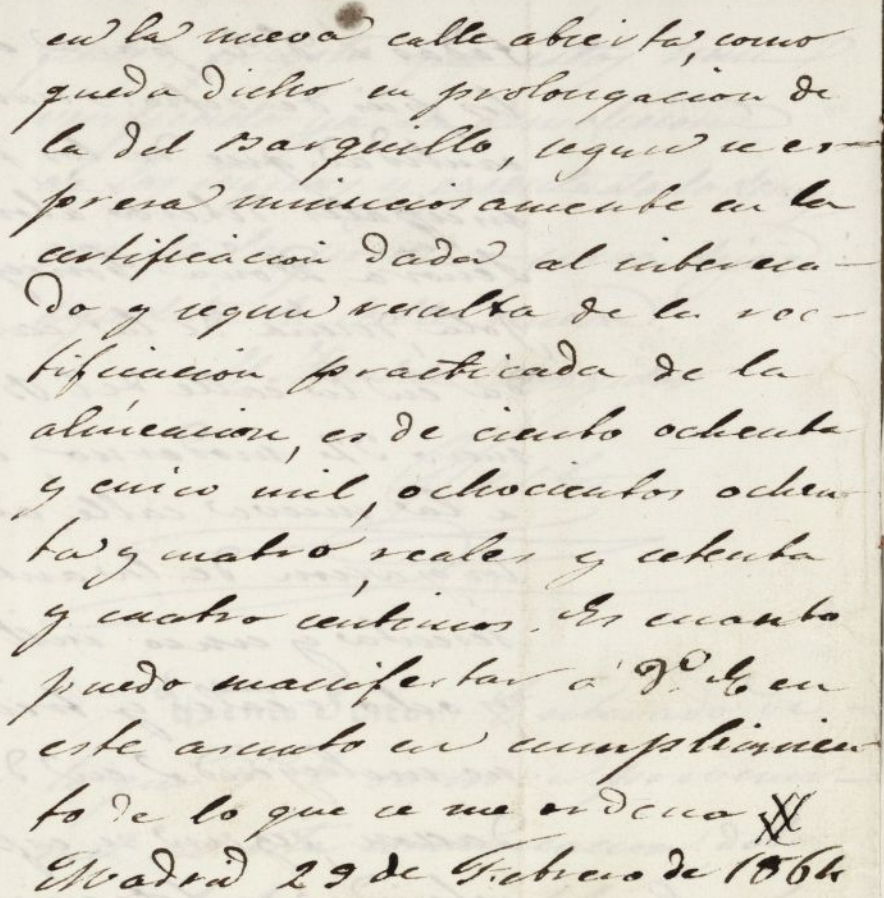 en la nueva calle abierta, como
queda dicho en prolongacion de
la del Barquillo, segun se es-
presa minuciosamente en la
certificacion dada al interesa-
do y segun resulta de la rec-
tificacion practicada de la
alineacion, es de ciento ochenta
y cinco mil, ochocientos ochen-
ta y cuatro, reales y setenta
y cuatro centimos. Es cuanto
puedo manifestar á V. E. en
este asunto en cumplimien-
to de lo que se me ordena
Madrid 29 de Febrero de 1864